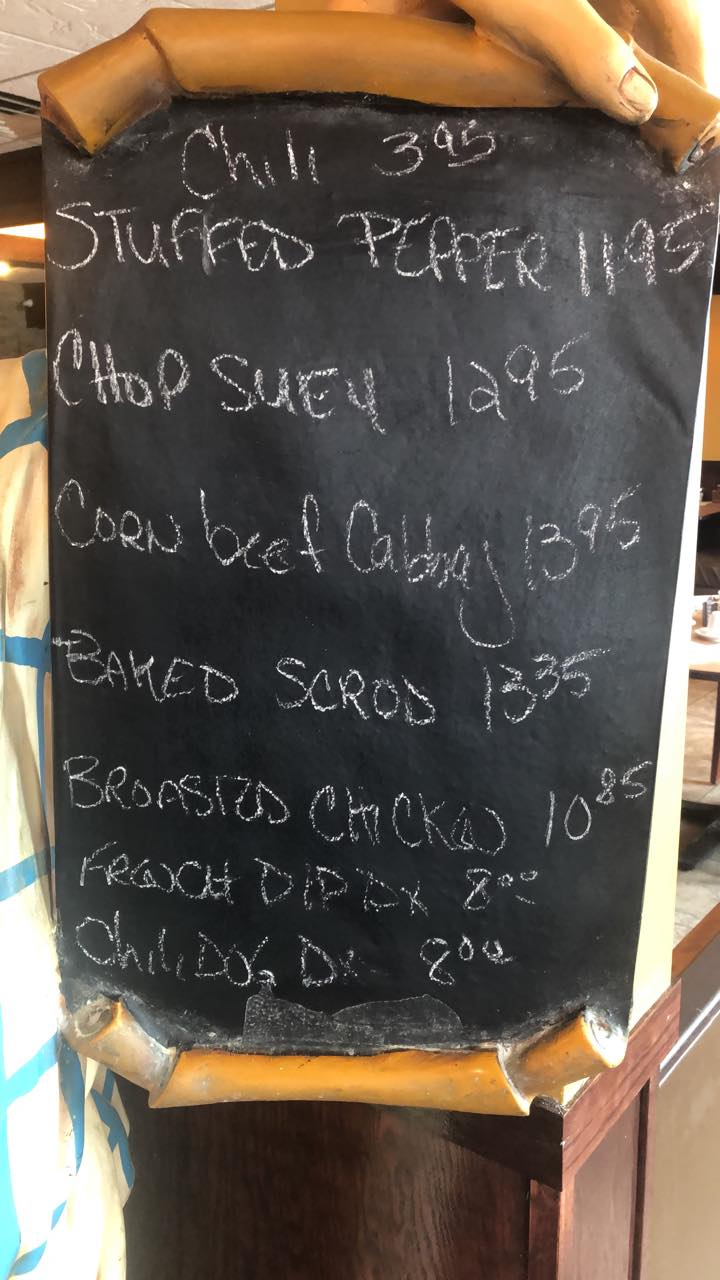 Chili 3 95
STUFFED PEPPER 11 95
CHOP SUEY 12 95
CORN beef Cabbag 13 95
BAKED SCROD 13 35
BROASTED CHICKEN 10 85
FRENCH DIP DX 8 00
Chili DOG DX 8 00